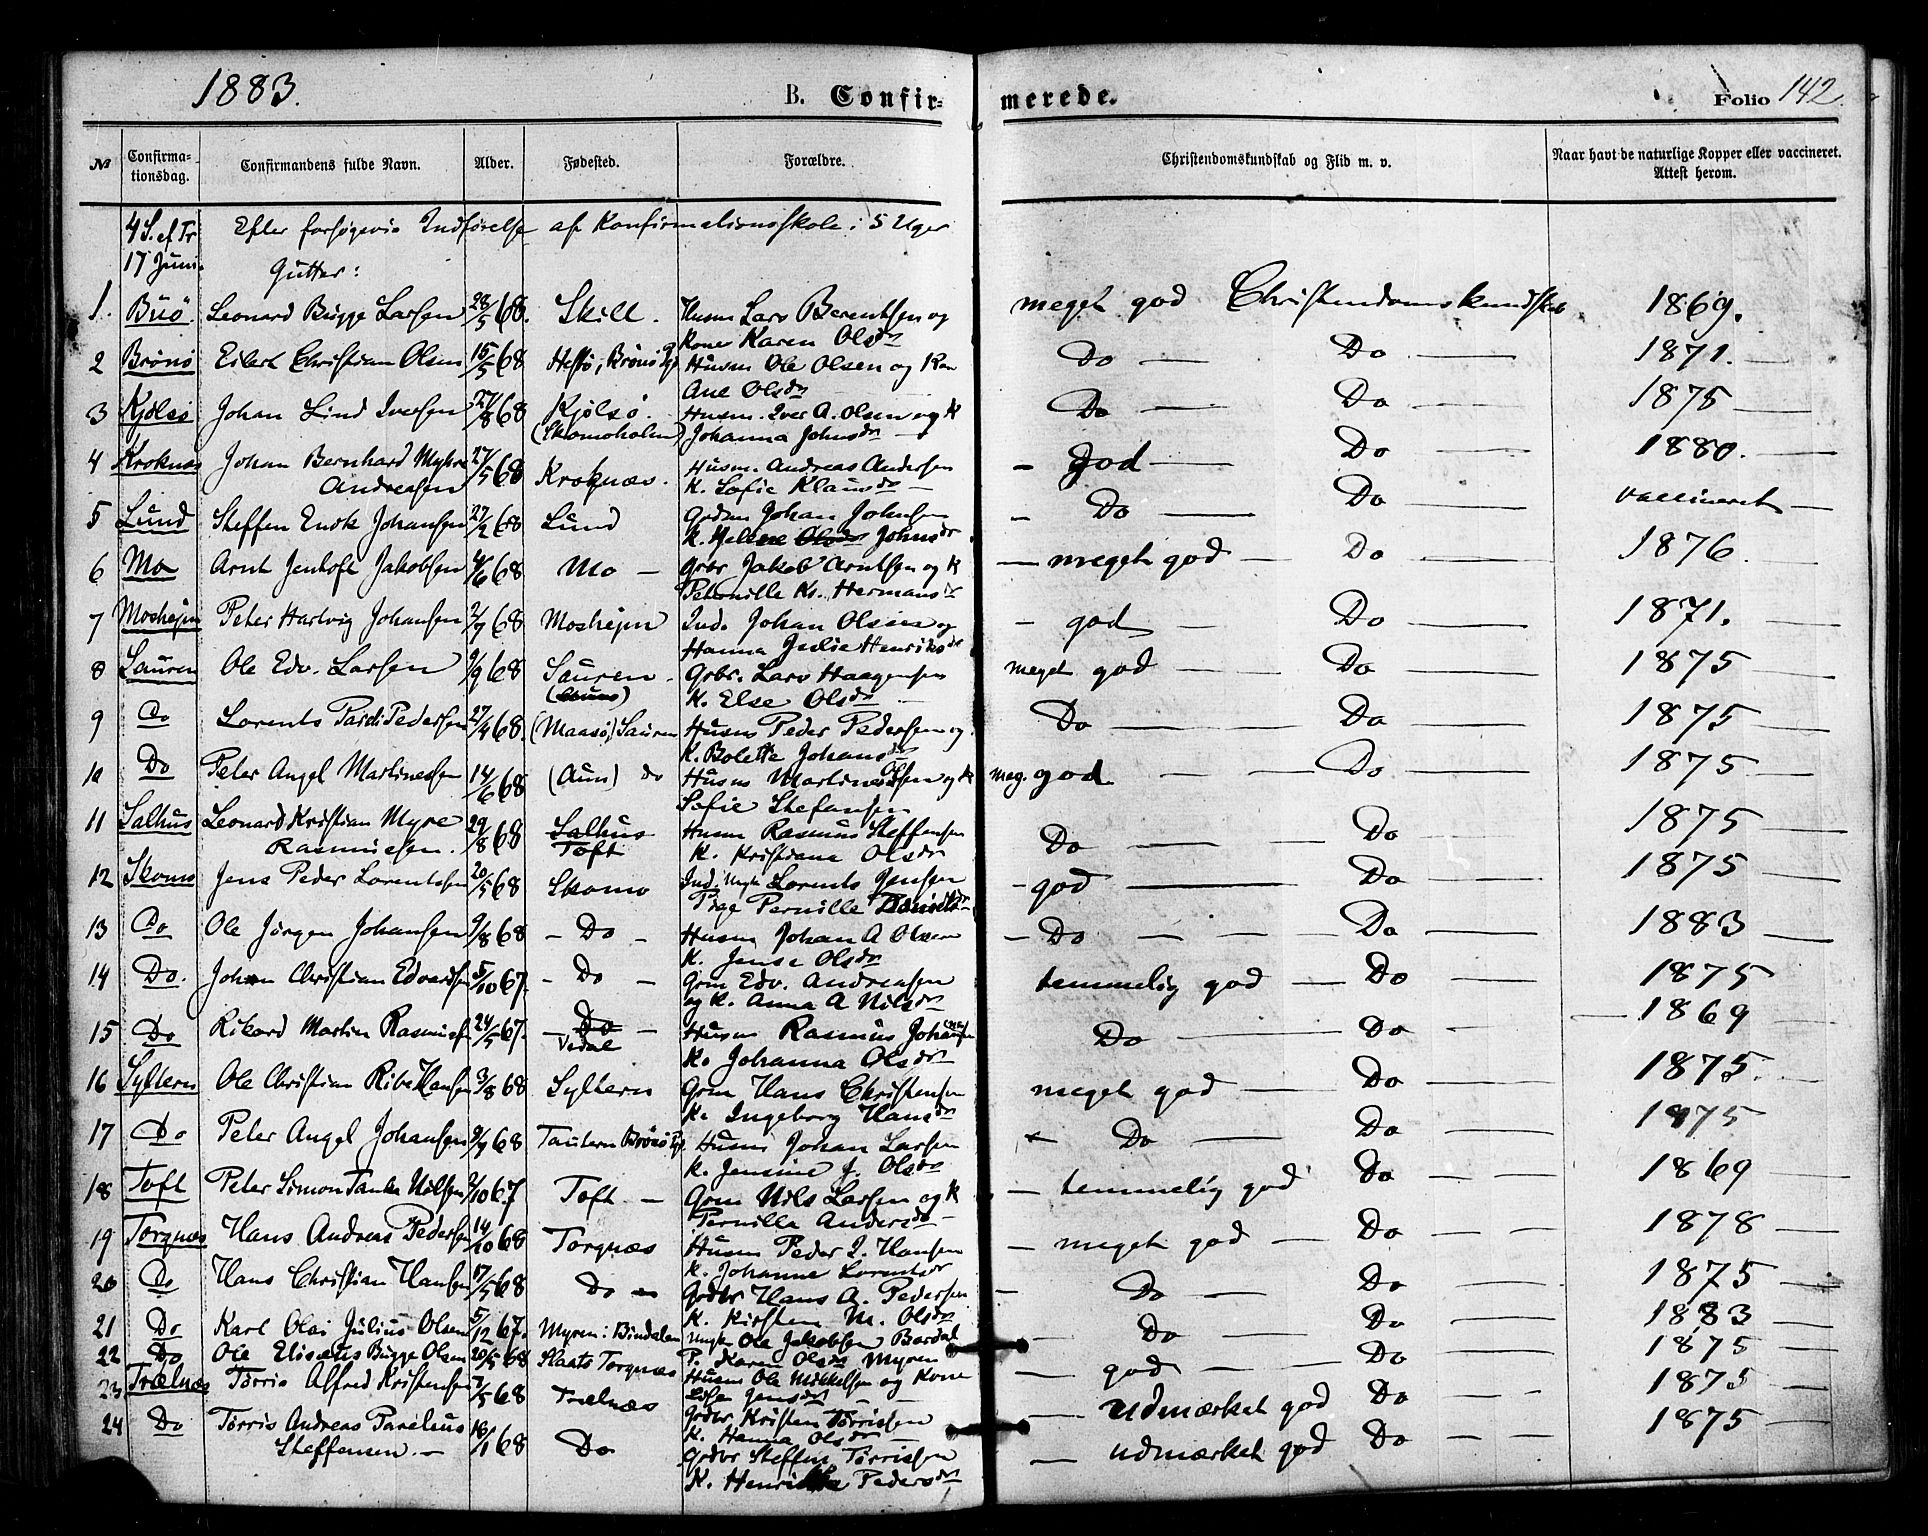 1883. B. Confir- merede. Folio 142.
№ Confirma-tionsdag. Confirmandens fulde Navn. Alder. Fødested. Forældre. Christendomskundskab og Flid m. v. Naar havt de naturlige Kopper eller vaccineret. Attest herom.
4 S. ef Tr Efter forsøgevis Indførelse af Konfirmationsskole i 5 Uger
17 Juni. Gutter:
1. Buö. Leonard Bugge Larsen 28/5 68. Skill. Husm Lars Berentsen og meget god Christendomskundskab 1869.
Kone Karen Olsdr
2 Brönö Eilert Christian Olsen 15/5 68 Brönö Husm Ole Olsen og Kone Do — Do — 1871. —
Ane Olsdr
3 Kjölsö Johan Lind Iversen 27/8 68 Kjölsö. Husm. Iver A. Olsen og K Do — Do — 1875 —
(Skomoholm) Johanna Johnsdr —
4 Kroknæs Johan Bernhard Myhre 27/5 68 Kroknæs. Husm. Andreas Andersen — god — Do — 1880. —
Andreasen K. Sofie Klausdr —
5 Lund Steffen Johansen 27/2 68 Lund Johan Johnsen — Do — Do — vaccineret —
K. Johnsdr
6 Mo Arnt Jentoft Jakobsen 4/6 68 Mo — Grbr Jakob Arntsen og K — meget god — Do — 1876.
Petronille Kr. Hermansdr
7 Moshejm Peter Hartvig Johansen 2/7 68 Moshejm Ind. Johan Olsen og — god — Do — 1871. —
Hanna Julie Henriksdr
8 Sauren Ole Edv. Larsen 9/9 68 Sauren. Grbr. Lars Haagensen meget god — Do — 1875 —
K. Else Olsdr —
9 Do Lorents Pedersen 27/4 68. (Maasö) Sauren Husm Peder Pedersen og Do — Do — 1875 —
K. Bolette Johansdr
10 Do Peter Angel Martinessen 14/6 68 (Aun) do Husm Martines Olsen og K meg. god — — Do — 1875 —
Sofie Stefansen
11 Salhus Leonard Kristian Myre 29/8 68 Salhus Husm Rasmus Steffensen Do — Do — 1875 —
Rasmussen. Toft K. Kristiane Olsdr
12 Skomo Jens Peder Lorentssen 20/5 68 Skomo Ind. Lorents Jensen — god — Do — 1875 —
Pige Pernille
13 Do Ole Jörgen Johansen 9/8 68 — Do — Husm Johan A Olsen — Do — — — Do — 1883 —
K. Jense Olsdr
14 Do. Johan Christian Edvardsen 5/10 67. — Do — Grm Edv. Andreassen temmelig god — Do — 1875 —
og K. Anna A Nilsdr
15 Do Rikard Martin Rasmussen 24/5 67. — Do — Husm Rasmus Johansen Do — Do — 1869 —
Vedal K. Johanna Olsdr
16 Syltern Ole Christian Ribe Hansen 3/8 68 Syltern Grm Hans Christensen meget god — Do — 1875.
K. Ingeborg Hansdr
17 Do Peter Angel Johansen 9/9 68 Tautern Brönö Husm Johan Larsen — Do — Do — 1875
K. Jensine J. Olsdr
18 Toft Peter Simon Tanke Nilsen 2/10 67 Toft — Grm Nils Larsen og K — temmelig god Do — — 1869 —
Pernille Andersdr —
19 Torgnæs Hans Andreas Pedersen 14/10 68 Torgnæs Husm Peder J. Hansen — meget god — Do — 1878 —
K. Johanne Lorentsdr
20 Do Hans Christian Hansen 17/5 68 Do — Grdbr Hans A. Pedersen — Do — Do — 1875 —
K. Kirsten M. Olsdr
21 Do Karl Olai Julius Olsen 5/12 67. Myren i Bindalen Ungk Ole Jakobsen Bardal — Do — Do — 1883 —
22 Do Ole Elisæus Bugge Olsen 20/5 68 Torgnæs P. Karen Olsdr Myren — god — Do — 1875 —
Husm Ole Mikkelsen og Kone
23 Trælnæs Törris Alfred Kristensen 7/5 68 Trælnæs Jensdr — — udmærket god Do — 1875 —
Grdbr Kristen Törrissen
24 Do Törris Andreas Parelius 16/1 68 Do K. Hanna Olsdr — — udmærket god Do — 1875 —
Steffensen. — Grdbr Steffen Törrissen
K. Pedersdr